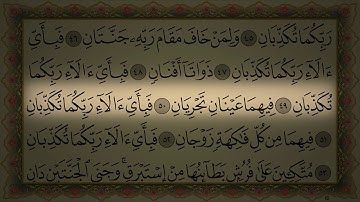 رَبِّكُمَا تُكَذِّبَانِ ٤٥ وَلِمَنْ خَافَ مَقَامَ رَبِّهِۦ جَنَّتَانِ ٤٦ فَبِأَيِّ
ءَالَآءِ رَبِّكُمَا تُكَذِّبَانِ ٤٧ ذَوَاتَآ أَفْنَانٍ ٤٨ فَبِأَيِّ ءَالَآءِ رَبِّكُمَا
تُكَذِّبَانِ ٤٩ فِيهِمَا عَيْنَانِ تَجْرِيَانِ ٥٠ فَبِأَيِّ ءَالَآءِ رَبِّكُمَا تُكَذِّبَانِ
٥١ فِيهِمَا مِن كُلِّ فَٰكِهَةٍ زَوْجَانِ ٥٢ فَبِأَيِّ ءَالَآءِ رَبِّكُمَا تُكَذِّبَانِ
٥٣ مُتَّكِـِٔينَ عَلَىٰ فُرُشٍۭ بَطَآئِنُهَا مِنْ إِسْتَبْرَقٍ ۚ وَجَنَى ٱلْجَنَّتَيْنِ دَانٍ